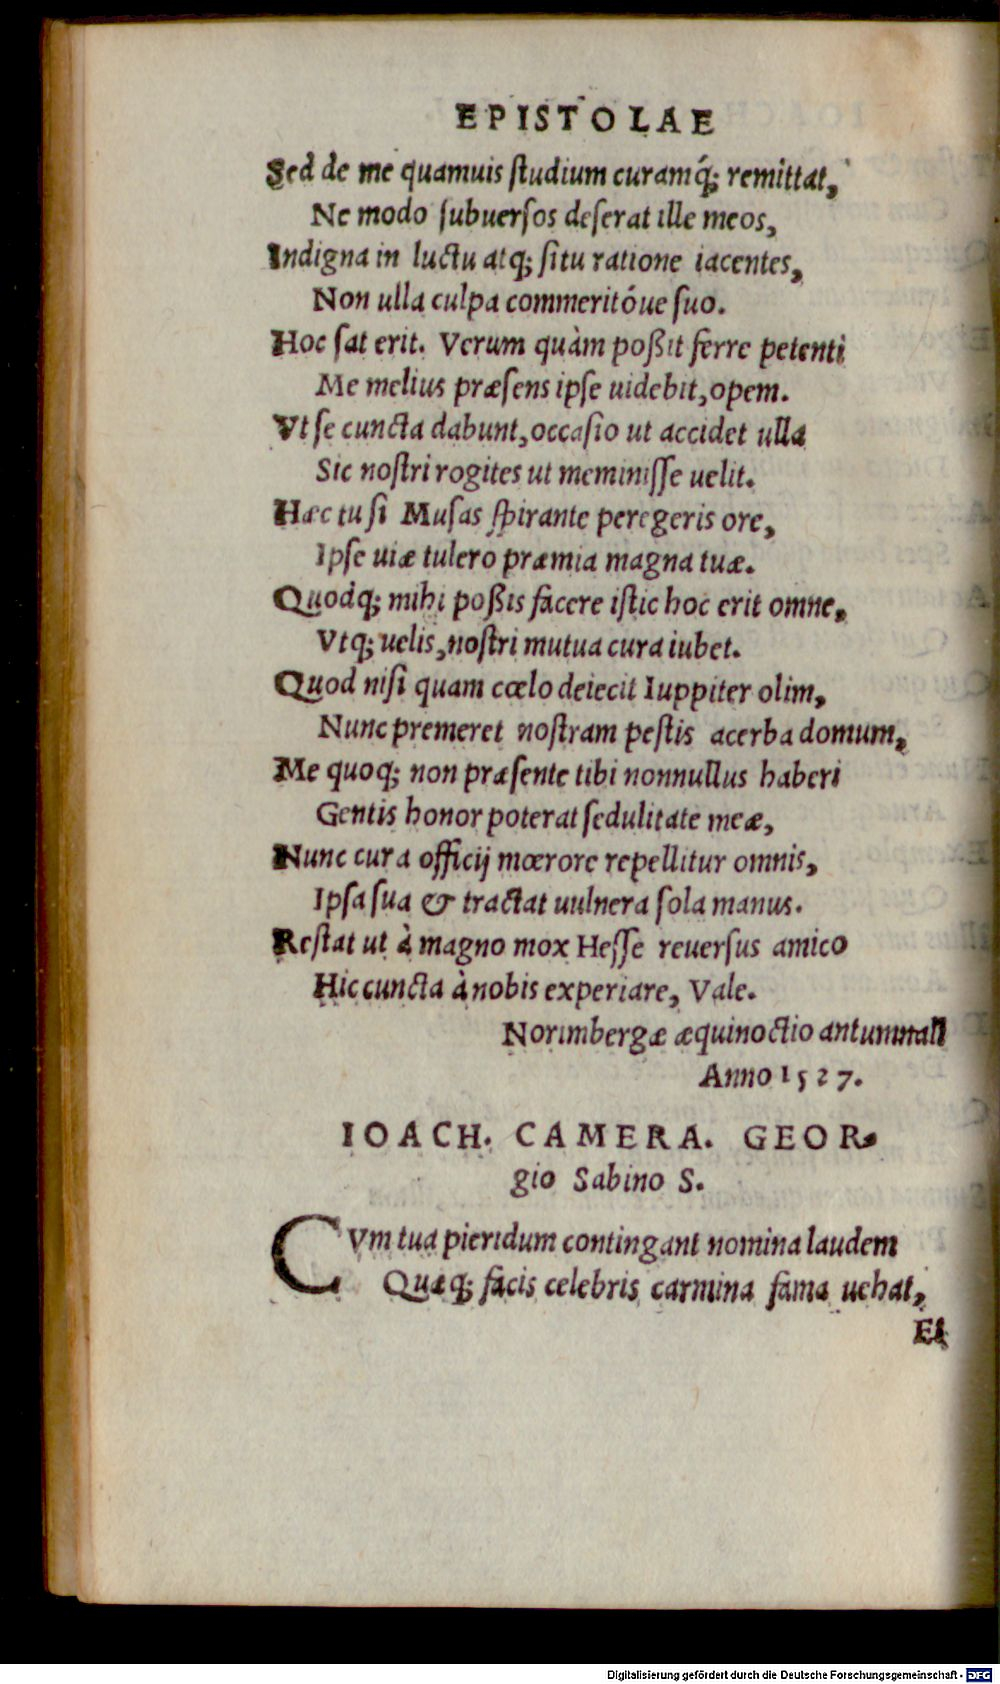 EPISTOLAE
Sed de me quamuis ſtudium curamq́; remittat,
Ne modo ſubuerſos deſerat ille meos,
Indigna in luctu atq; ſitu ratione iacentes,
Non ulla culpa commeritóue ſuo.
Hoc ſat erit. Verum quàm poßit ferre petenti
Me melius præſens ipſe uidebit, opem.
Vt ſe cuncta dabunt, occaſio ut accidet ulla
Sic noſtri rogites ut meminiſſe uelit.
Hæc tu ſi Muſas ſpirante peregeris ore,
Ipſe uiæ tulero præmia magna tuæ.
Quodq; mihi poßis facere iſtic hoc erit omne,
Vtq; uelis, noſtri mutua cura iubet.
Quod niſi quam cœlo deiecit Iuppiter olim,
Nunc premeret noſtram peſtis acerba domum,
Me quoq; non præſente tibi nonnullus haberi
Gentis honor poterat ſedulitate meæ,
Nunc cura officij mœrore repellitur omnis,
Ipſa ſua & tractat uulnera ſola manus.
Reſtat ut à magno mox Heſſe reuerſus amico
Hic cuncta à nobis experiare, Vale.
Norimbergæ æquinoctio antumnali
Anno 1527.
IOACH. CAMERA. GEOR-
gio Sabino S.
CVm tua pieridum contingant nomina laudem
Quæq; facis celebris carmina fama uehat,
Et
Digitalisierung gefördert durch die Deutsche Forschungsgemeinschaft - DFG